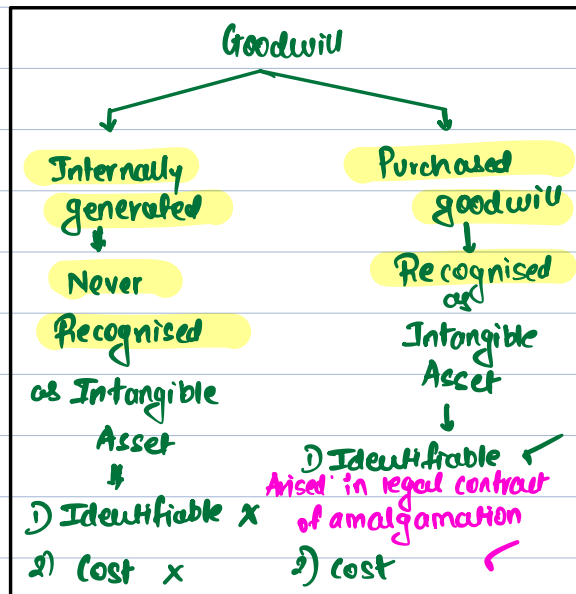 Goodwill
Internally
generated
Never
Recognised
as Intangible
Asset
1) Identifiable x
2) Cost x
Purchased
goodwill
Recognised
as
Intangible
Asset
1) Identifiable ✓
Arised in legal contract
of amalgamation
2) cost ✓